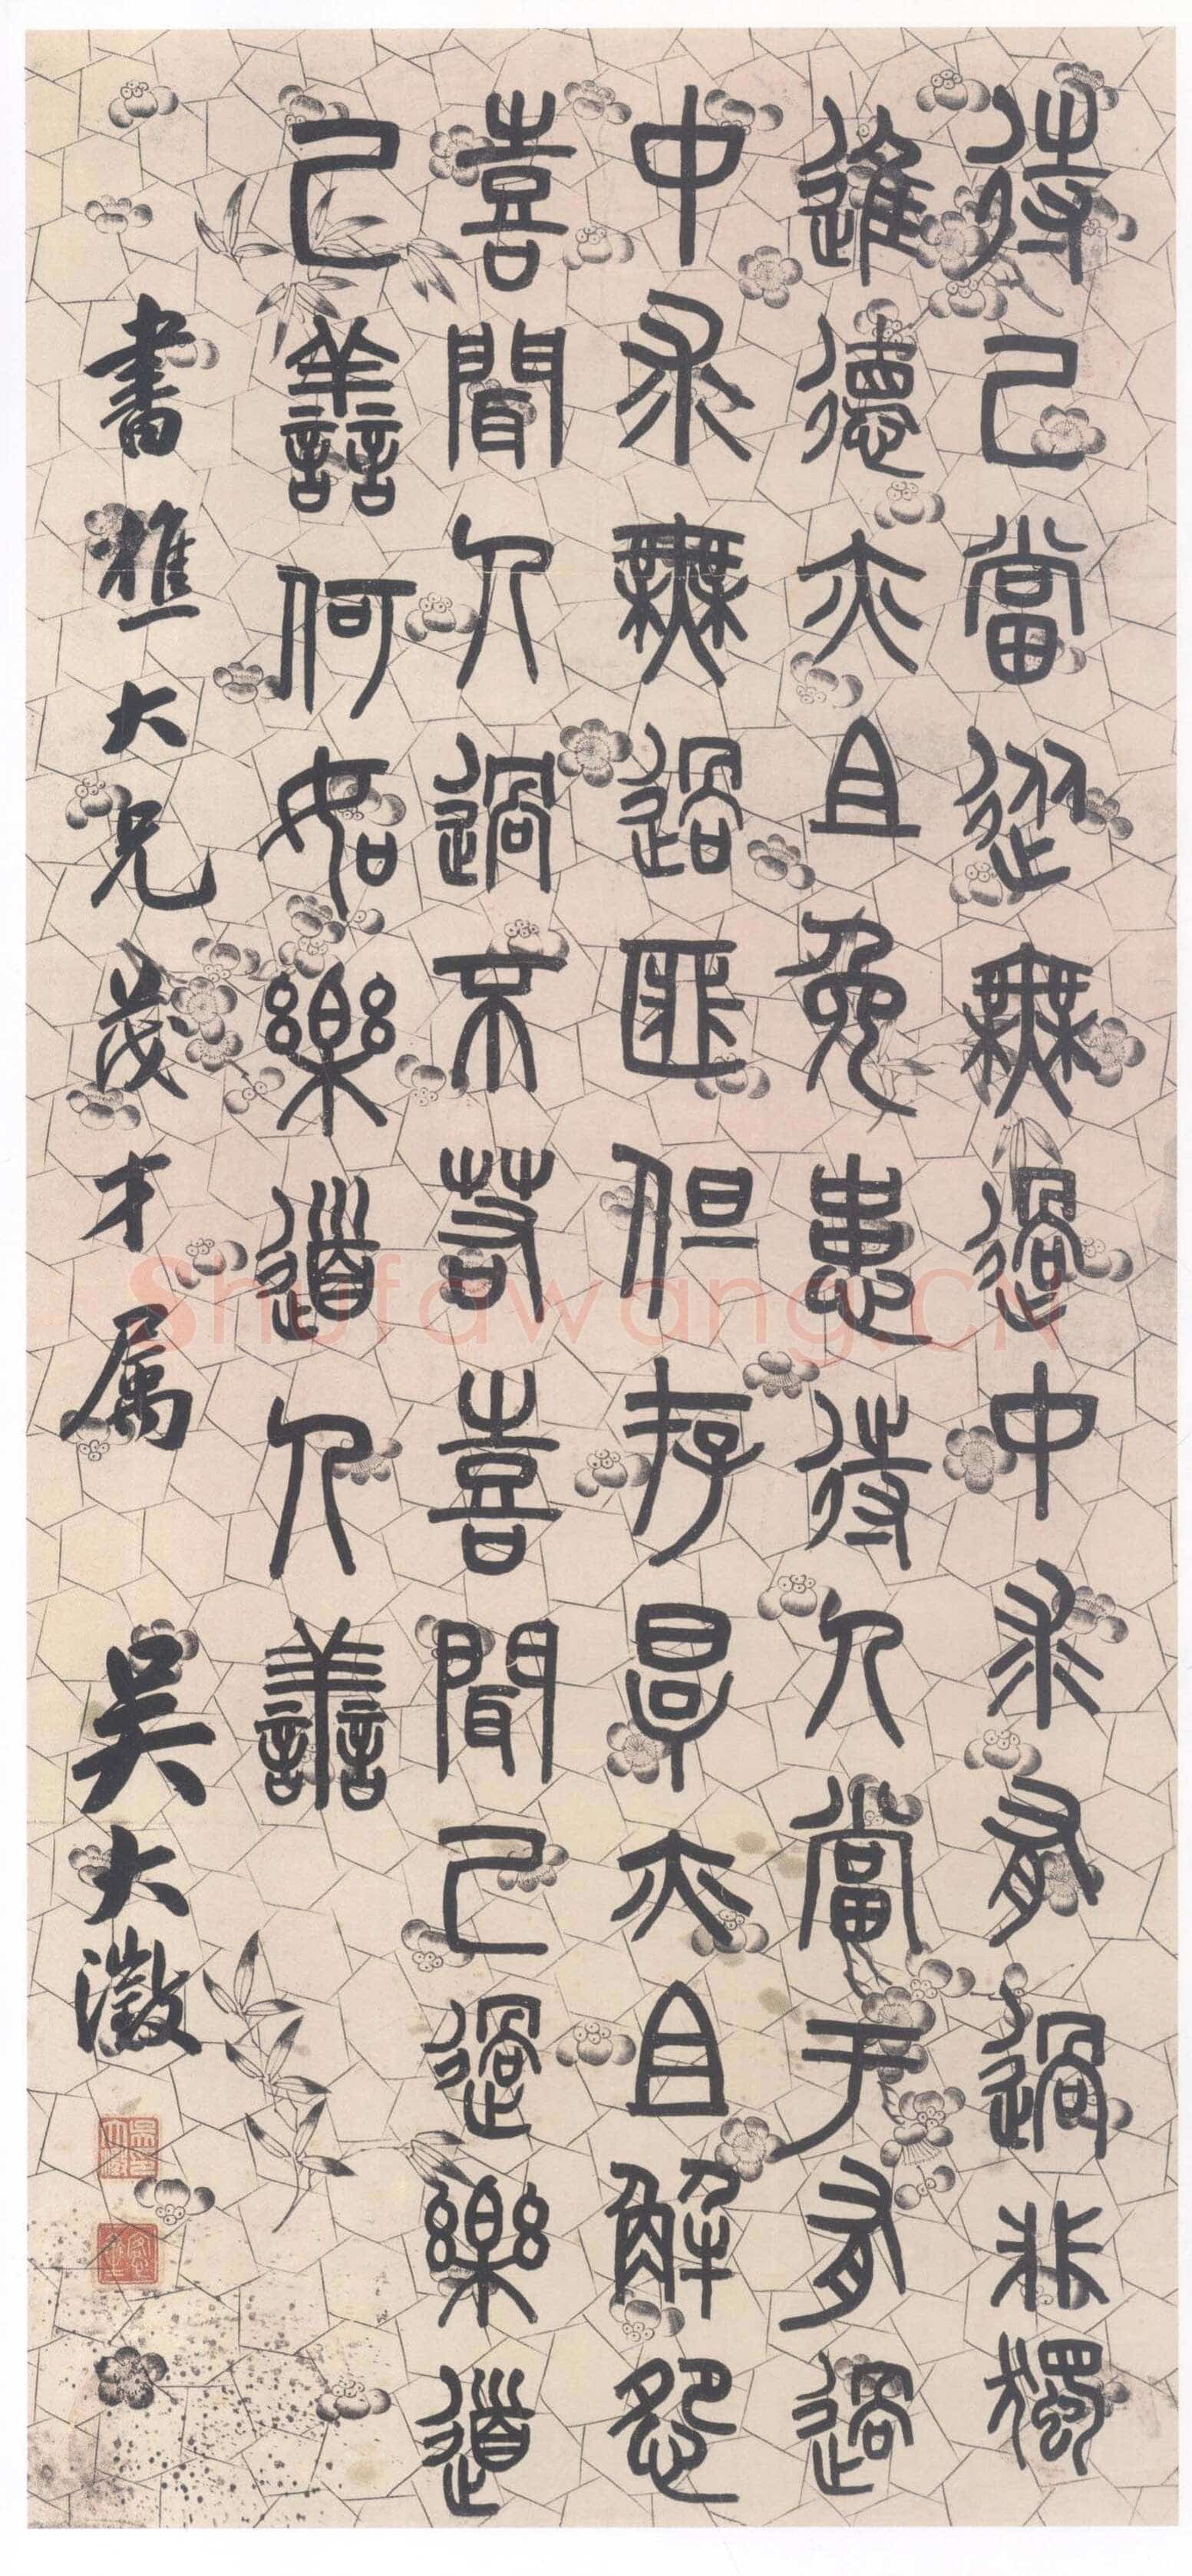 待己當從無過中求有過非獨
進德亦且免患待人當于有過
中求無過匪但存厚亦且解怨
喜聞人過不若喜聞己過樂道
己善何如樂道人善
書雅大兄茂才属 吴大澂
Shufawang.CN